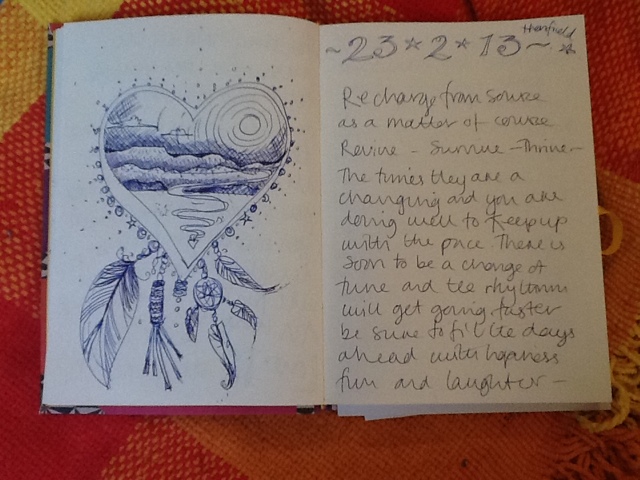 Henfield
~23*2*13~*
Recharge from source
as a matter of course
Revive - Survive - Thrive -
The times they are a
changing and you are
doing well to keep up
with the pace. There is
soon to be a change of
tune and the rhythms
will get going faster
be sure to fill the days
ahead with
fun and laughter -